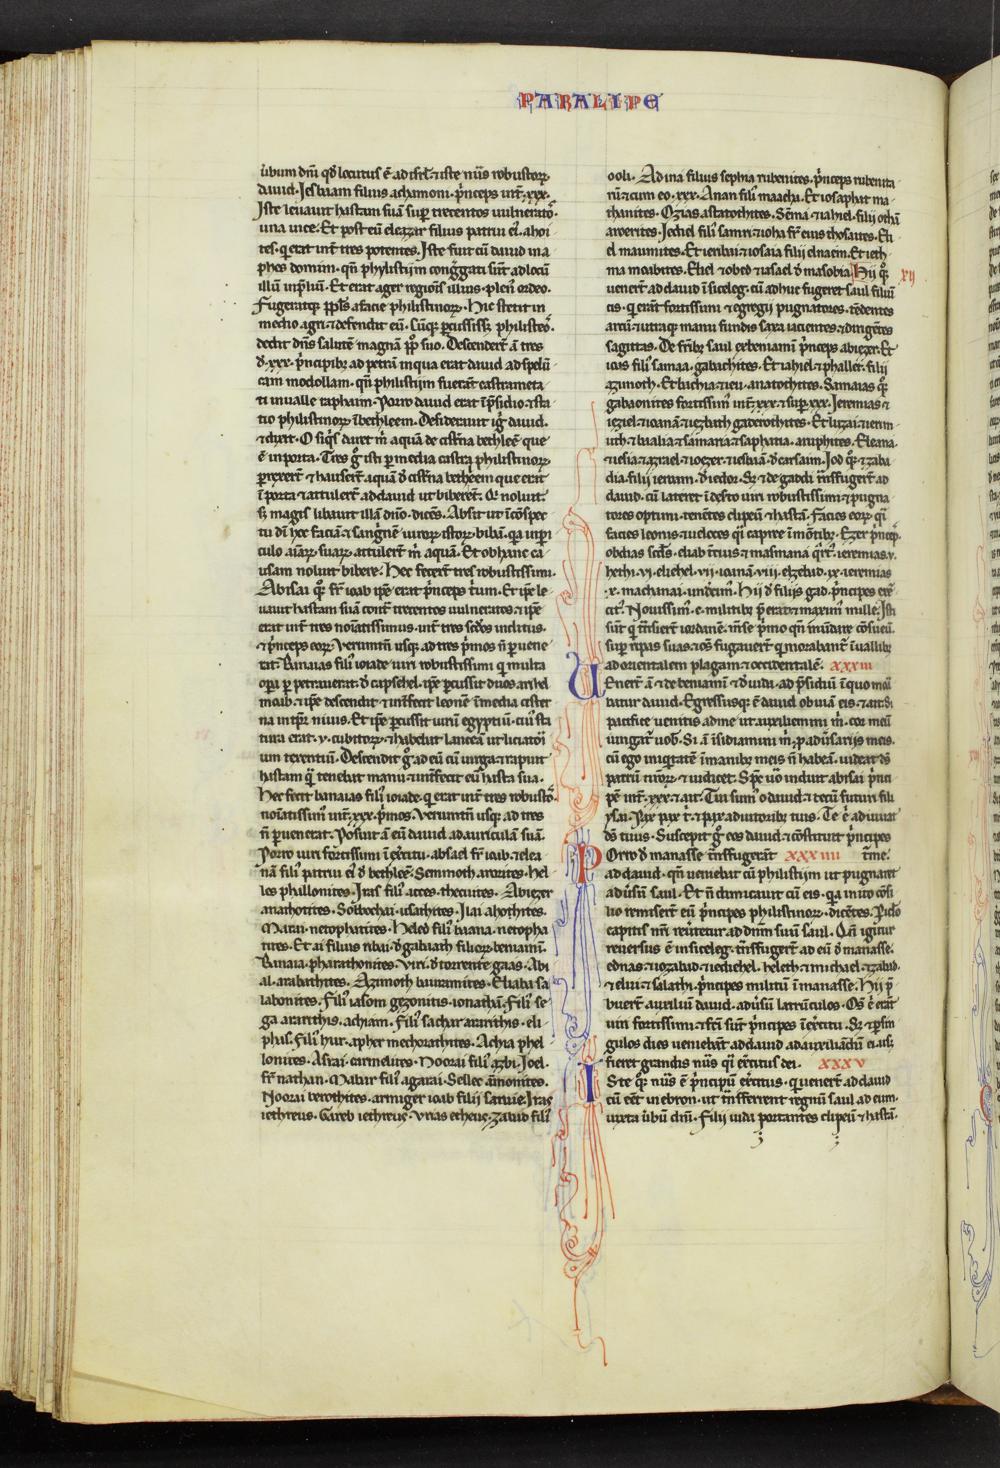 PARALIPE
uerbum dñi qd̃ locutus ẽ ad isrl̃. ⁊ iste nũs robustoꝝ
dauid. Iesbaam filius achamoni. p̃nceps int̃ .xxx.
Iste leuauit hastam suã suꝑ trecentos uulneratos.
una uice. Et post eũ eleazar filius patrui eĩ. ahoi
tes. q̃ erat int̃ tres potentes. Iste fuit cũ dauid in a
phes domim. qñ phylistijm cong̃gati sũt ad locũ
illũ in p̃liũ. Et erat ager regiõis illius. plenꝰ ordeo.
Fugeratqꝫ pp̃ls a facie philistinoꝝ. Hic stetit in
medio agri ⁊ defendit eũ. Cũqꝫ ꝑcussissꝫ philisteos.
dedit dñs salutẽ magnã pp̃lo suo. Descenderũt ã tres
d̃ .xxx. p̃ncipibꝫ ad petrã in qua erat dauid ad spelũ
cam modollam. qñ philistijm fuerãt castrameta
ti in ualle raphaim. Porro dauid erat ĩ p̃sidio ⁊ sta
tio philistinoꝝ ĩ bethleem. Desiderauit igr̃ dauid.
⁊ dixit. O siq̃s daret m̃ aquã de cist̃na bethleẽ que
ẽ in porta. Tres g̃ isti ꝑ media castra philistinoꝝ
ꝑrexert̃ ⁊ hauserũt aquã d̃ cist̃na bethleem que erat
ĩ porta ⁊ attulert̃ ad dauid ut biberet. Qi noluit.
sꝫ magis libauit illã dño. dicẽs. Absit ut ĩ cõspec
tu dĩ hec faciã ⁊ sanguinẽ uiroꝝ istoꝝ bibã. qa in ꝑi
culo aĩaꝝ suaꝝ attulert̃ m̃ aquã. Et ob hanc ca
usam noluit bibere. Hec fecert̃ tres robustissimi.
Abisai qꝫ fr̃ ioab ip̃e erat p̃nceps triũm. Et ip̃e le
uauit hastam suã cont̃ trecentos uulneratos. ⁊ ip̃e
erat int̃ tres noĩatissimus. int̃ tres scd̃os inclitus.
⁊ p̃nceps eoꝝ. Verumtñ usqꝫ ad tres p̃mos ñ ꝑuene
rat. Banaias filĩ ioiade uiri robustissimi q̃ multa
opera ꝑpetrauerat. d̃ capsehel. ip̃e ꝑcussit duos arihel
moab. ⁊ ip̃e descendit ⁊ int̃fecit leonẽ ĩ media cister
na tempr̃ niuis. Et ip̃e ꝑcussit uirũ egyptiũ. cuiꝰ sta
tura erat .v. cubitoꝝ. ⁊ habebat lanceã ut liciatori
um texentiũ. Descendit g̃ ad eũ cũ uirga. ⁊ rapuit
hastam quã tenebat manu. ⁊ int̃fecit eũ hasta sua.
Hec fecit banaias filĩ ioiade. q̃ erat int̃ tres robustos
noĩatissimꝰ int̃ .xxx. p̃mos. Verumtñ usqꝫ ad tres
ñ ꝑuenerat. Posuit ã eũ dauid ad auriculã suã.
Porro uiri fortissimi ĩ exercitu. absael fr̃ ioab. ⁊ elea
nã filĩ patrui eiꝰ d̃ bethleẽ. Semmoth arorites. hel
les phillonites. Iras filĩ acces. thecuites. Abiezer
anathotites. Sobbochai. usathites. Ilai ahothites.
Marai. netophatites. Heled filĩ baana. netopha
tites. Et ai filius ribai. d̃ gabaath filioꝝ beniamĩ.
Banaia. pharathonites. Viri. d̃ torrente gaas. Abi
al. arabathites. Azmoth bauramites. Eliaba sa
labonites. Filĩ iasom gezonitis. ionathã. filĩ se
ga ararithis. achiam. filĩ sachar ararithis. eli
phal. filĩ hur. apher mechorathites. Achia phel
lonites. Asrai. carmelites. Noorai filĩ azbi. Joel.
fr̃ nathan. Mabar filĩ agarai. Sellec ãmonites.
Noorai berothites. armiger ioab filii saruie. Iras
iethreus. Gareb iethreus. Vrias etheus. zabad filĩ
ooli. Adina filius sephia rubenites. p̃nceps rubenita
rũ ⁊ cum eo .xxx. Anan filĩ maacha. Et iosaphat ma
thanites. Ozias astarothites. Sẽma ⁊ iahiel. filij othã
arorites. Jediel filĩ samri ⁊ ioha fr̃ eius thosaites. Eli
el maumites. Et ieribai ⁊ iosaia filii elnaem. Et ieth
ma moabites. Eliel ⁊ obed ⁊ iasiel d̃ masobia. Hij qꝫ xij
uenert̃ ad dauid ĩ siceleg. cũ adhuc fugeret saul filiũ
cis. q̃ erãt fortissimi ⁊ egregij pugnatores. tẽdentes
arcũ ⁊ utraqꝫ manu fundis saxa iacientes ⁊ dirigẽtes
sagittas. De fr̃ibꝫ saul ex beniamĩ p̃nceps abiezer. Et
ioas filĩ samaa. gabathites. Et iahiel ⁊ phallet. filij
azmoth. Et bachia ⁊ ieu. anatothites. Samaias qꝫ
gabaonites fortissimꝰ int̃ .xxx. ⁊ suꝑ .xxx. Jeremias ⁊
ieziel ⁊ ioanã ⁊ iezbath gaderothites. Et luzai ⁊ ierim
uth ⁊ baalia ⁊ samaria ⁊ saphatia. aruphites. Elcana.
⁊ iesia ⁊ azrael ⁊ ioezer ⁊ iesbaã d̃ carẽim. Jod qꝫ ⁊ zaba
dia filij ieroam. d̃ iedor. Sꝫ ⁊ de gaddi trãsfugert̃ ad
dauid. cũ lateret ĩ desto uiri robustissimi ⁊ pugna
tores optimi. tenẽtes clipeũ ⁊ hastã. Facies eoꝝ q̃i
facies leonis ⁊ ueloces q̃i capree ĩ mõtibꝫ. Ezer p̃nceps.
obdias scd̃s. eliab tcius ⁊ masmana q̃rt̃. ieremias .v.
hethi .vi. eliehel .vii. ioanã .viii. elzebad .ix. ieremias
.x. machanai. undecim̃. Hij d̃ filijs gad. p̃ncipes exer
citꝰ. Nouissimꝰ .c. militibꝫ p̃erat ⁊ maximꝰ mille. Isti
sũt q̃ trãsiert̃ iordanẽ. mẽse p̃mo qñ inũdare cõsueuit
suꝑ ripas suas. ⁊ oẽs fugauert̃ q̃ morabant̃ ĩ uallibꝫ
ad orientalem plagam ⁊ occidentalẽ. xxxiii
VEnert̃ ã ⁊ de beniamĩ ⁊ d̃ iuda. ad p̃sidiũ ĩ quo mora
batur dauid. Egressusqꝫ ẽ dauid obuiã eis. ⁊ ait. Si
pacifice uenistis ad me ut auxiliemini m̃. cor meũ
iungat̃ uob̃. Si ã ĩsidiamini m̃. ꝓ aduersarijs meis.
cũ ego iniquitatẽ ĩ manibꝫ meis ñ habeã. uideat ds̃
patrũ nr̃oꝝ ⁊ iudicet. Sp̃c uo induit abisai p̃nci
pẽ int̃ .xxx. ⁊ ait. Tui sumꝰ o dauid ⁊ tecũ futuri fili
ysai. Pax pax t̃. ⁊ pax adiutoribꝫ tuis. Te ẽ adiuuat
ds̃ tuus. Suscepit g̃ eos dauid ⁊ cõstituit p̃ncipes
POrro d̃ manasse trãsfugerũt xxxiiii t̃me.
ad dauid. qñ ueniebat cũ philistijm ut pugnaret
aduersũ saul. Et ñ dimicauit cũ eis. qa inito cõsi
lio remisert̃ eũ p̃ncipes philistinoꝝ. dicẽtes. Piclo
capitis nr̃i reuertetur ad dnm̃ suũ saul. Qñ igitur
reuersus ẽ in siceleg. trãsfugert̃ ad eũ d̃ manasse.
ednas ⁊ iozabad ⁊ iedichel. heleth ⁊ michael ⁊ zabad.
⁊ eliu ⁊ salathi. p̃ncipes militũ ĩ manasse. Hij p̃
buert̃ auxiliũ dauid. aduersũ latrũculos. Oẽs ẽ erãt
uiri fortissimi. ⁊ fc̃i sũt p̃ncipes ĩ exercitu. Sꝫ ⁊ ꝑ sin
gulos dies ueniebãt ad dauid ad auxiliãdũ ei. usqꝫ
fieret grandis nũs q̃i exercitus dei. xxxv
ISte qꝫ nũs ẽ p̃ncipũ exercitus. q̃ uenert̃ ad dauid
cũ eẽt in ebron. ut trãsferrent regnũ saul ad eum.
iuxta ũbũ dnĩ. Filij iuda portantes clipeũ ⁊ hastã.